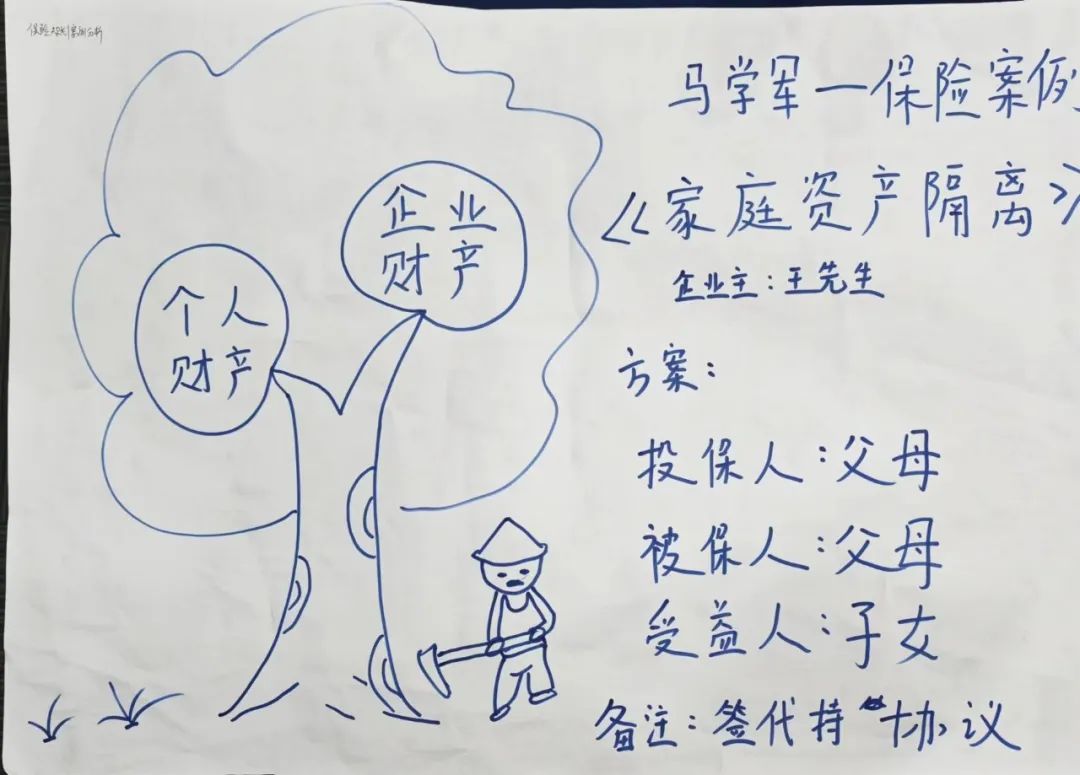 马学军一保险案例
《家庭资产隔离》
企业主：王先生
企业
财产
个人
财产
方案：
投保人：父母
被保人：父母
受益人：子女
备注：签代持协议